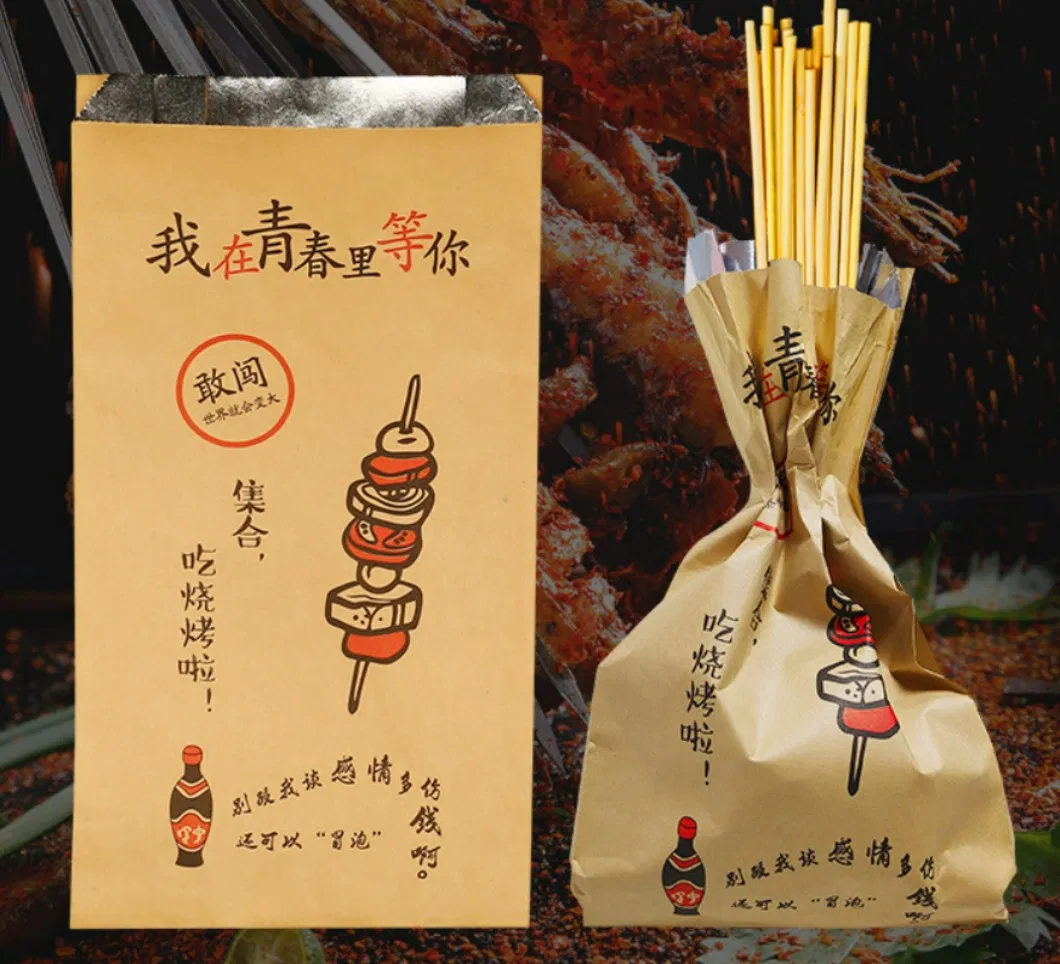 我在青春里等你
敢闯
世界就会变大
集合，
吃烧烤啦！
别跟我谈感情多伤钱啊。
还可以“冒泡”
我在青春等你
吃烧烤啦！
别跟我谈感情多伤钱啊
还可以“冒泡”